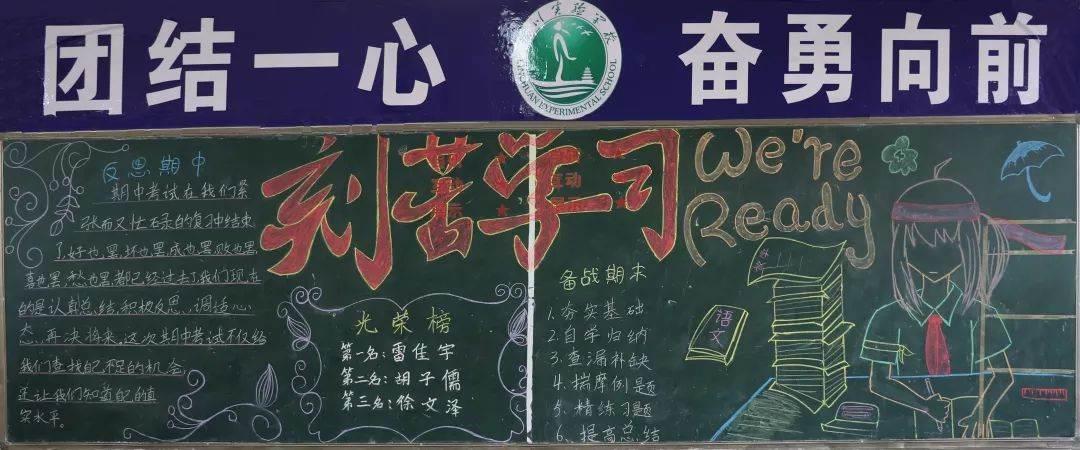 团结一心
川实验学校
LINCHUAN EXPERIMENTAL SCHOOL
奋勇向前
刻苦学习
互动
We're
Ready
反思期中
期中考试在我们紧
张而又忙碌的复习中结束
了,好也罢,坏也罢成也罢败也罢
喜也罢,愁也罢都已经过去了我们现在
的是认真总结,积极反思、调适心
态,再决将来。这次期中考试不仅给
我们查找自己不足的机会
还让我们知道自己的值
实水平。
光荣榜
第一名:雷佳宇
第二名:胡子儒
第三名:徐文泽
备战期末
1.夯实基础
2.自学归纳
3.查漏补缺
4.揣摩例题
5、精练习题
6、提高总结
语文